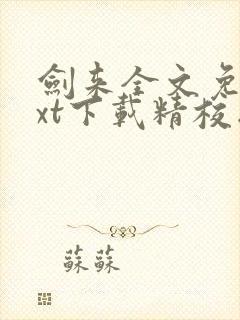 劍来全文免
xt下載精校
蘇蘇